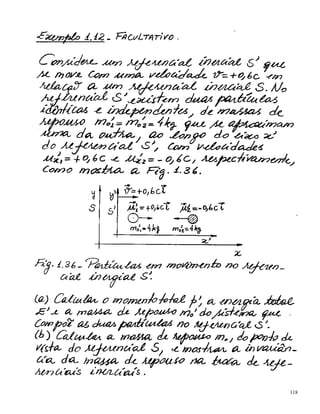 Exemplo 1.12 - FACULTATIVO.
Considere um referencial inercial S' que
se move com uma velocidade v⃗=+0,6c em
relação a um referencial inercial S. No
referencial S' existem duas partículas
idênticas e independentes, de massas de
repouso m₀'₁=m₀'₂=4kg que se aproximam
uma da outra, ao longo do eixo x'
do referencial S', com velocidades
u'x₁=+0,6c e u'x₂=-0,6c, respectivamente,
como mostra a Fig. 1.36.
y y' v⃗=+0,6c i⃗
S S' u⃗'₁=+0,6c i⃗ u⃗'₂=-0,6c i⃗
m₀'₁=4kg m₀'₂=4kg
x'
x
Fig. 1.36 - Partículas em movimento no referen-
cial inercial S'.
(a) Calcular o momento total p', a energia total
E' e a massa de repouso m₀' do sistema que
compõe as duas partículas no referencial S'.
(b) Calcular a massa de repouso m₀, do ponto de
vista do referencial S, e mostrar a invariân-
cia da massa de repouso na troca de refe-
renciais inerciais.
118